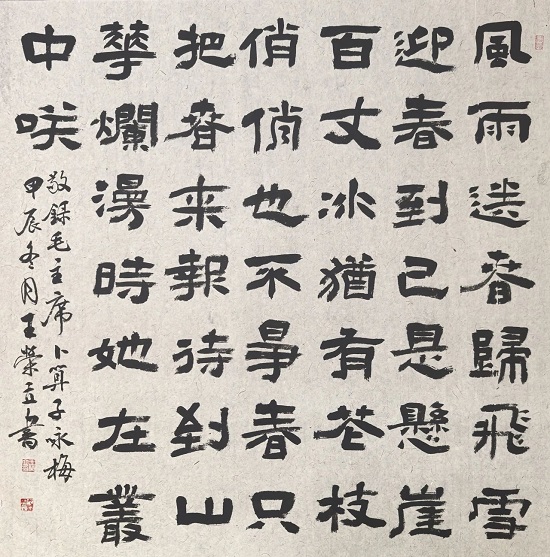 風雨送春歸飛雪
迎春到已是懸崖
百丈冰猶有花枝
俏俏也不爭春只
把春来報待到山
華爛漫時她在叢
中咲
敬録毛主席卜算子咏梅
甲辰冬月王榮立書